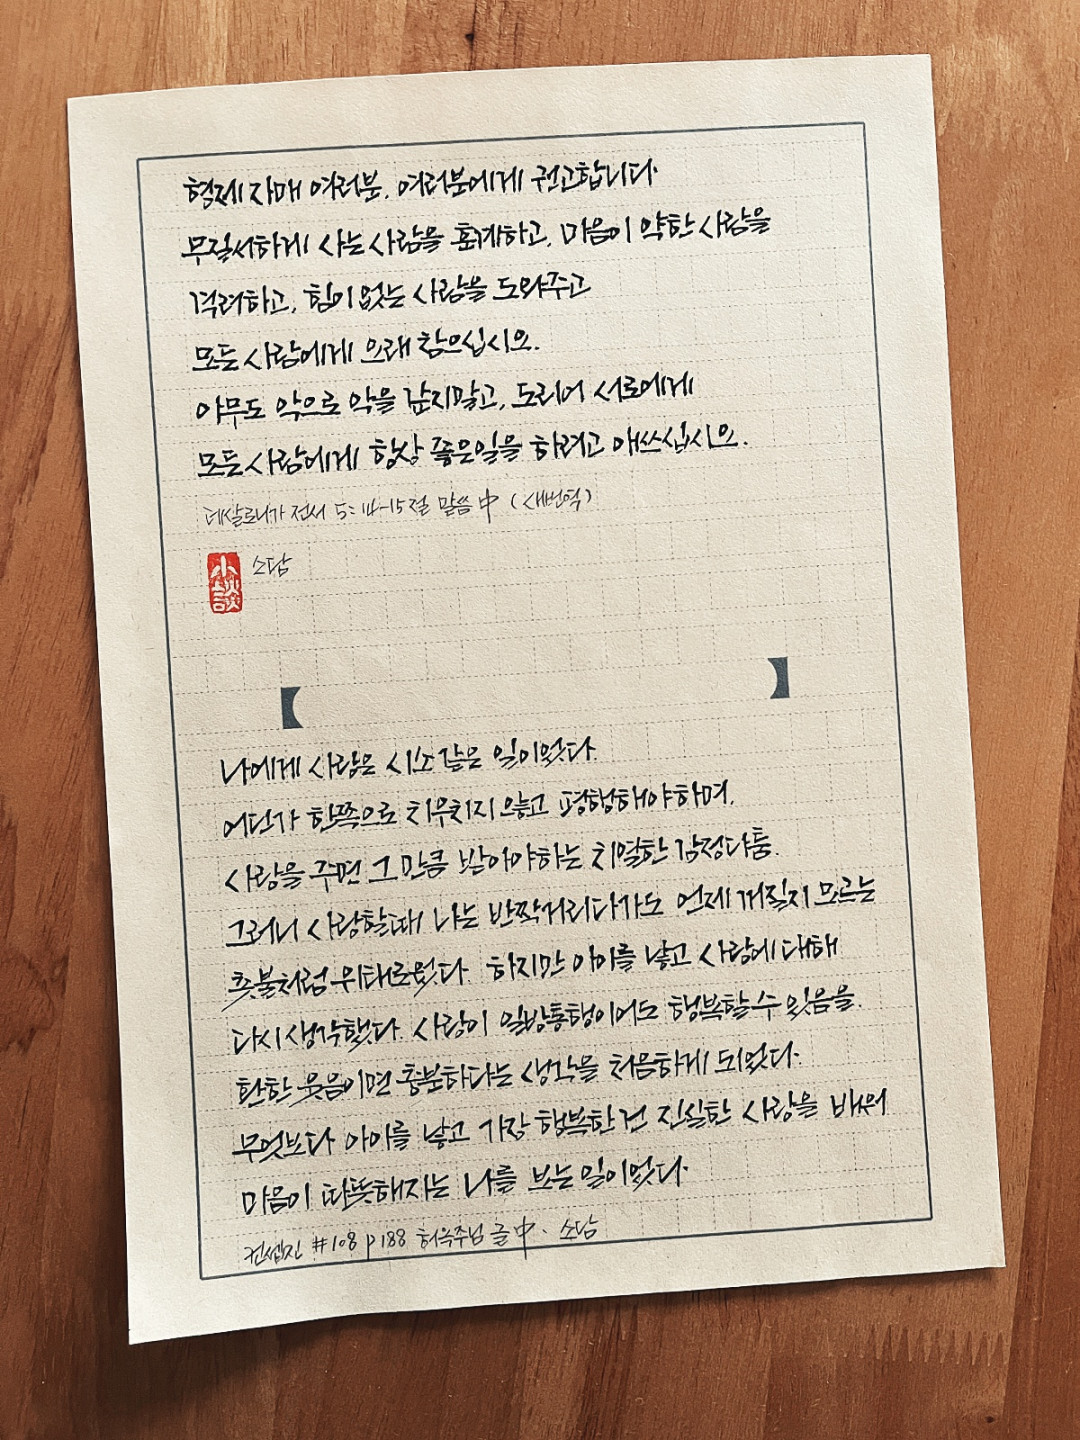 형제 자매 여러분, 여러분에게 권고합니다.
무질서하게 사는 사람을 훈계하고, 마음이 약한 사람을
격려하고, 힘이 없는 사람을 도와주고
모든 사람에게 오래 참으십시오.
아무도 악으로 악을 갚지말고, 도리어 서로에게
모든 사람에게 항상 좋은일을 하려고 애쓰십시오.
데살로니가 전서 5:14-15절 말씀 中 (새번역)
小談 소담
나에게 사랑은 시소 같은 일이었다.
어딘가 한쪽으로 치우치지 않고 평행해야하며,
사랑을 주면 그 만큼 받아야하는 치열한 감정다툼.
그러니 사랑할때 나는 반짝거리다가도 언제 꺼질지 모르는
촛불처럼 위태로웠다. 하지만 아이를 낳고 사랑에 대해
다시 생각했다. 사랑이 일방통행이어도 행복할 수 있음을.
환한 웃음이면 충분하다는 생각을 처음하게 되었다.
무엇보다 아이를 낳고 가장 행복한 건 진실한 사랑을 배워
마음이 따뜻해지는 나를 보는 일이었다.
컨셉진 #108 p188 허욱주님 글 中. 소담